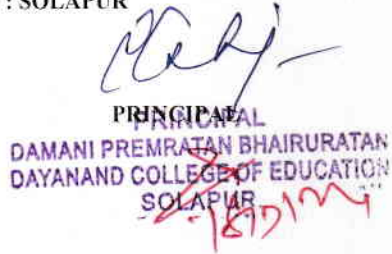 : SOLAPUR
PRINCIPAL
PRINCIPAL
DAMANI PREMRATAN BHAIRURATAN
DAYANAND COLLEGE OF EDUCATION
SOLAPUR